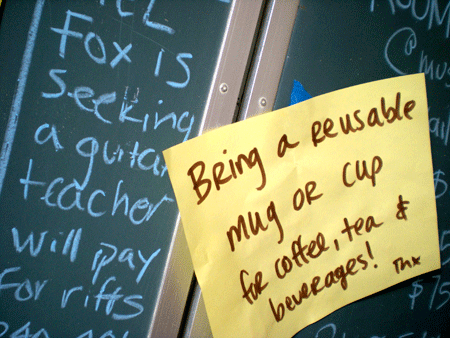 Fox is
seeking
a guitar
teacher
will pay
for riffs
Bring a reusable
mug or cup
for coffee, tea &
beverages! Thx
ROOM
@mus
$15